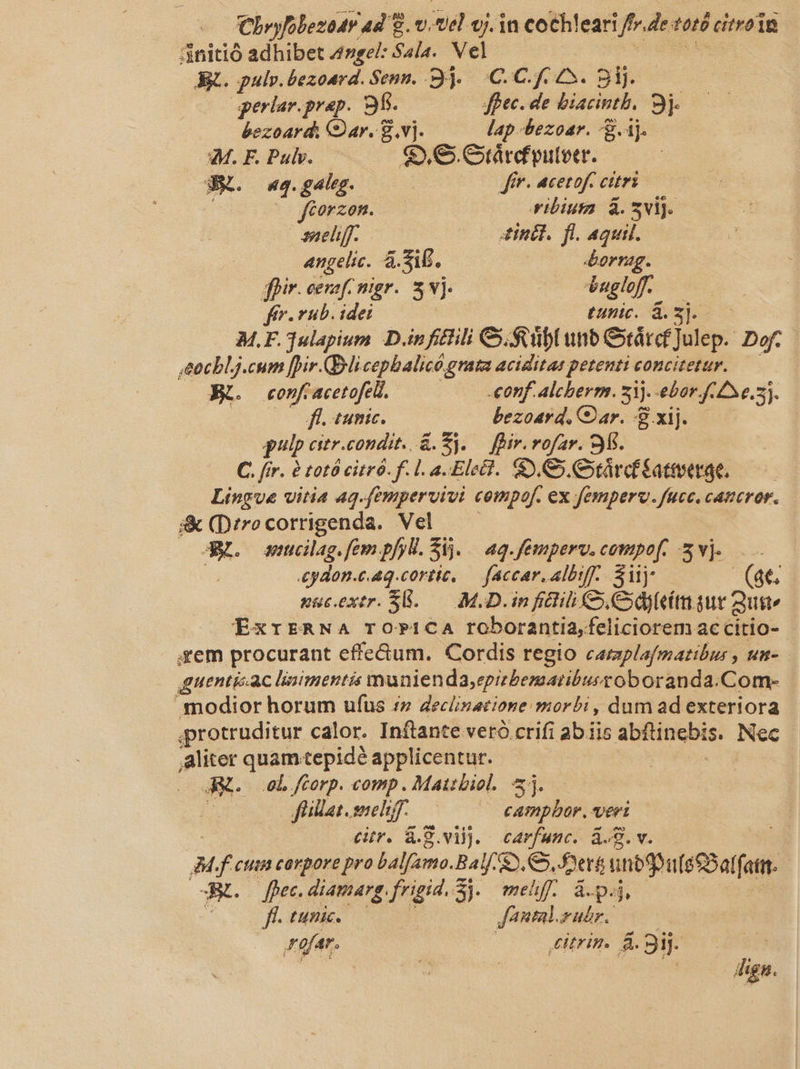 Chryſobezoar ad g. v. vel vj. in cochleari ſir. de totô citro in
initiô adhibet Angel: Sala. Vel
℞. pulv. bezoard. Senn. ℈j. C. C. ſ. △. ℈ij.
perlar. prep. ℈ß. ſpec. de hiacinth. ℈j.
bezoard. ☉ar. g. vj. lap bezoar. g. ij.
M. F. Pulv. D. S. Stärckpulver.
℞. aq. galeg. ſir. acetoſ. citri
ſcorzon. ribium ã. ʒvij.
meliſſ. tinct. fl. aquil.
angelic. ã. ℥iß. borrag.
ſpir. ceraſ. nigr. ʒ vj. bugloſſ.
ſir. rub. idei tunic. ã. ʒj.
M. F. Julapium D. in fictili S. Kühl und Stärck Julep. Doſ:
cochl j. cum ſpir. ⊕li cephalicô grata aciditas petenti concitetur.
℞. conſ. acetoſell. conf. alcherm. ʒij. ebor. ſ. △e. ʒj.
fl. tunic. bezoard. ☉ar. g. xij.
pulp citr. condit. ã. ℥j. ſpir. roſar. ℈ß.
C. ſir. è totô citrô. ſ. l. a. Elect. D. S. Stärcklattverge.
Lingvæ vitia aq. ſempervivi compoſ. ex ſemperv. ſucc. cancror.
& ⦶tro corrigenda. Vel
℞. mucilag. ſem pſyll. ℥ij. aq. ſemperv. compoſ. ʒ vj.
cydon. c. aq. cortic. ſaccar. albiſſ. ℥iij. (ge.
nuc. extr. ℥ß. M. D. in fictili S. Schleim zur Zun-
EXTERNA TOPICA roborantia, feliciorem ac citio-
rem procurant effectum. Cordis regio cataplaſmatibus, un-
guentis ac linimentis munienda, epithematibus roboranda. Com-
modior horum uſus in declinatione morbi, dum ad exteriora
protruditur calor. Inſtante verò criſi ab iis abſtinebis. Nec
aliter quam tepidè applicentur.
℞. ol. ſcorp. comp. Matthiol. ʒj.
ſtillat. meliſſ. camphor. veri
citr. ã. g. viij. carfunc. ã. g. v.
M. f. cum corpore pro balſamo. Balſ. D. S. Hertz und Puls Balſam.
℞. ſpec. diamarg. frigid. ℥j. meliſſ. ã. p. j.
fl. tunic. ſantal. rubr.
roſar. citrin. ã. ℈ij.
lign.